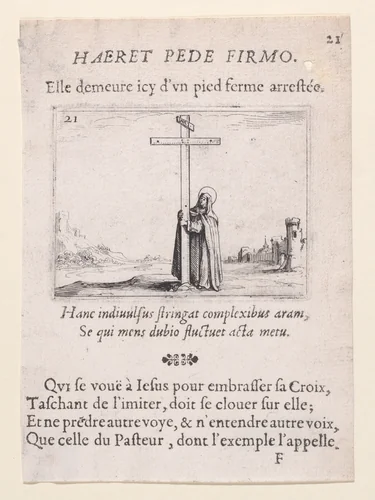 21
HAERET PEDE FIRMO.
Elle demeure icy d'vn pied ferme arrestée.
21
Hanc indiuulsus stringat complexibus aram,
Se qui mens dubio fluctuet acta metu.
Qvi se vouë à Iesus pour embrasser sa Croix,
Taschant de l'imiter, doit se clouer sur elle;
Et ne prẽdre autre voye, & n'entendre autre voix,
Que celle du Pasteur, dont l'exemple l'appelle.
F